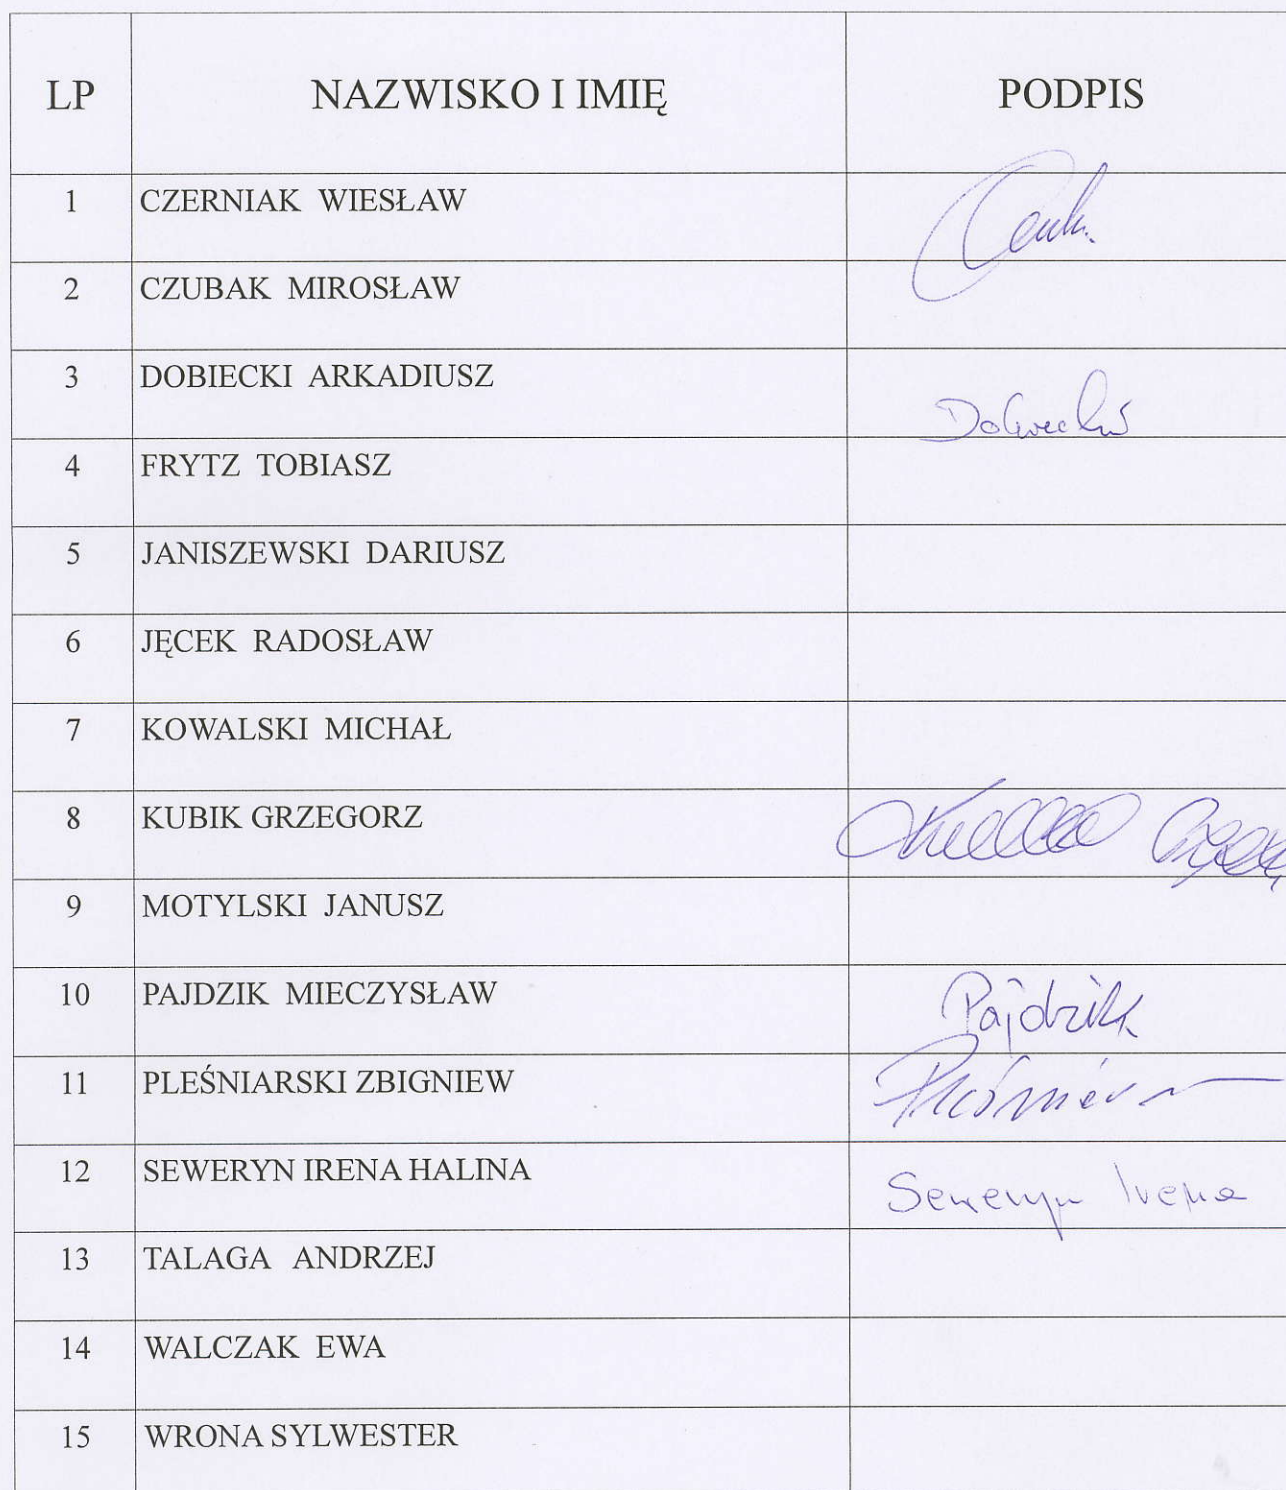 LP NAZWISKO I IMIĘ PODPIS
1 CZERNIAK WIESŁAW
2 CZUBAK MIROSŁAW
3 DOBIECKI ARKADIUSZ Dobiecki
4 FRYTZ TOBIASZ
5 JANISZEWSKI DARIUSZ
6 JĘCEK RADOSŁAW
7 KOWALSKI MICHAŁ
8 KUBIK GRZEGORZ
9 MOTYLSKI JANUSZ
10 PAJDZIK MIECZYSŁAW Pajdzik
11 PLEŚNIARSKI ZBIGNIEW
12 SEWERYN IRENA HALINA Seweryn Irena
13 TALAGA ANDRZEJ
14 WALCZAK EWA
15 WRONA SYLWESTER